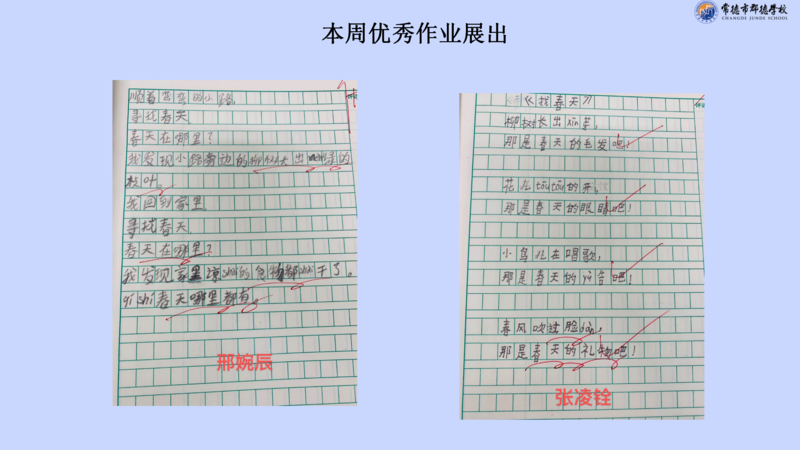 常德市郡德学校
CHANGDE JUNDE SCHOOL
本周优秀作业展出
顺着弯弯的小路
寻找春天
春天在哪里?
我发现小路旁边的柳树长出
枝叶。
我回到家里
寻找春天
春天在哪里?
我发现家里凉shài的食物都shài干了。
qí shí春天哪里都有。
邢婉辰
《找春天》
柳树长出xīn芽,
那是春天的毛发吧!
花儿tōu tōu的开,
那是春天的眼睛吧!
小鸟儿在唱歌,
那是春天的yīn告吧!
春风吹过脸
那是春天的礼物吧!
张凌铨